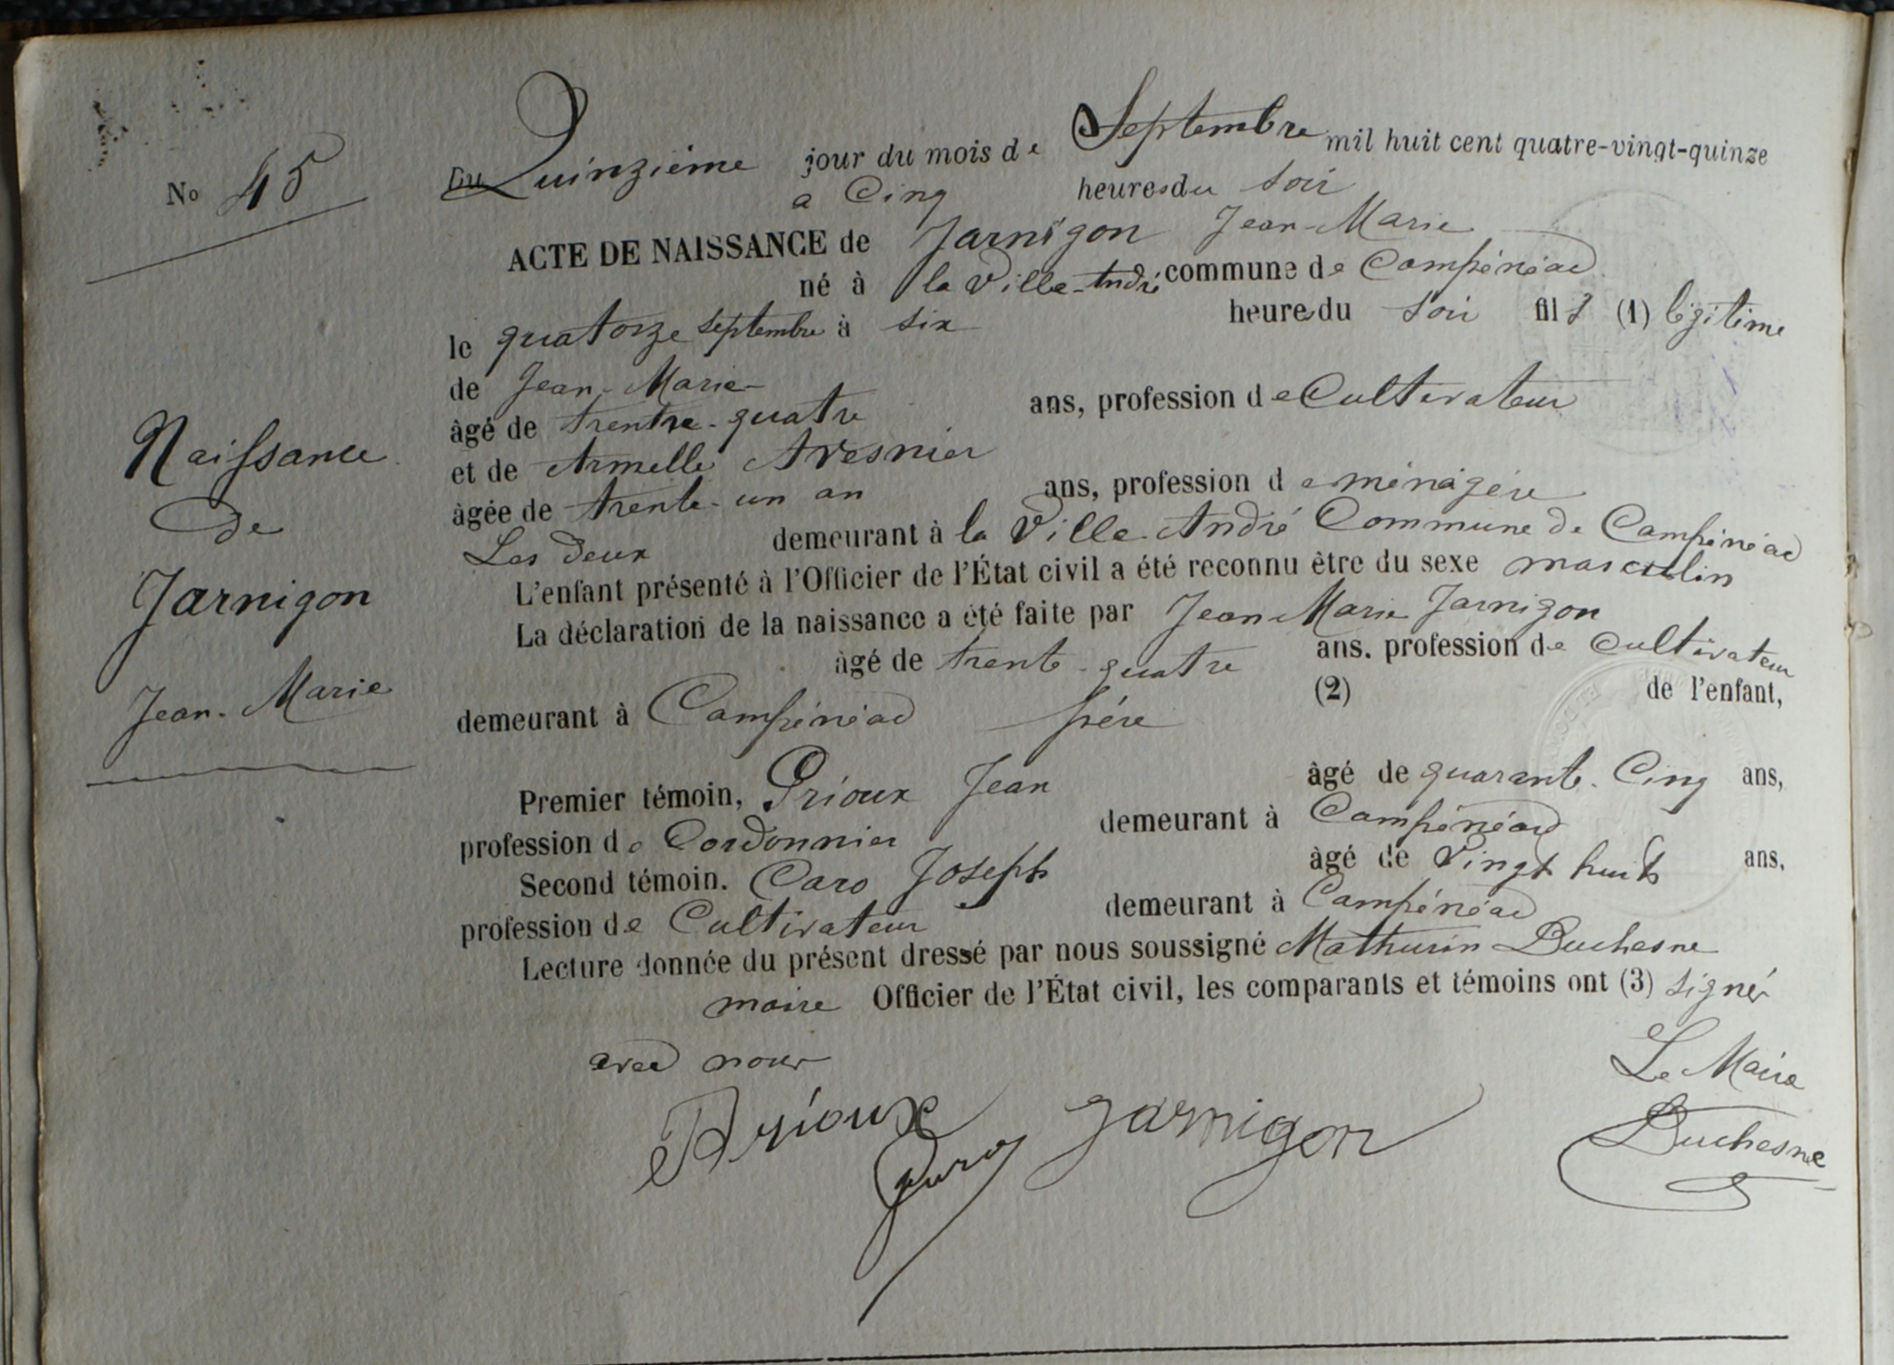 No 45
Du Quinzième jour du mois de Septembre mil huit cent quatre-vingt-quinze
a Cinq heures du soir
ACTE DE NAISSANCE de Jarnigon Jean-Marie
né à la Ville-André commune de Campénéac
le quatorze septembre à six heure du soir fils (1) légitime
de Jean-Marie
âgé de trente-quatre ans, profession de Cultivateur
et de Armelle Avesnier
âgée de trente-un an ans, profession de ménagère
Les deux demeurant à la Ville-André Commune de Campénéac
L'enfant présenté à l'Officier de l'État civil a été reconnu être du sexe masculin
La déclaration de la naissance a été faite par Jean-Marie Jarnigon
âgé de trente-quatre ans. profession de Cultivateur
demeurant à Campénéac père (2) de l'enfant,
Premier témoin, Prioux Jean âgé de quarante-Cinq ans,
profession de Cordonnier demeurant à Campénéac
Second témoin. Caro Joseph âgé de Vingt huit ans,
profession de Cultivateur demeurant à Campénéac
Lecture donnée du présent dressé par nous soussigné Mathurin Duchesne
maire Officier de l'État civil, les comparants et témoins ont (3) signé
avec nous
Le Maire
Prioux Jarnigon Duchesne
Caro
Naissance
de
Jarnigon
Jean-Marie